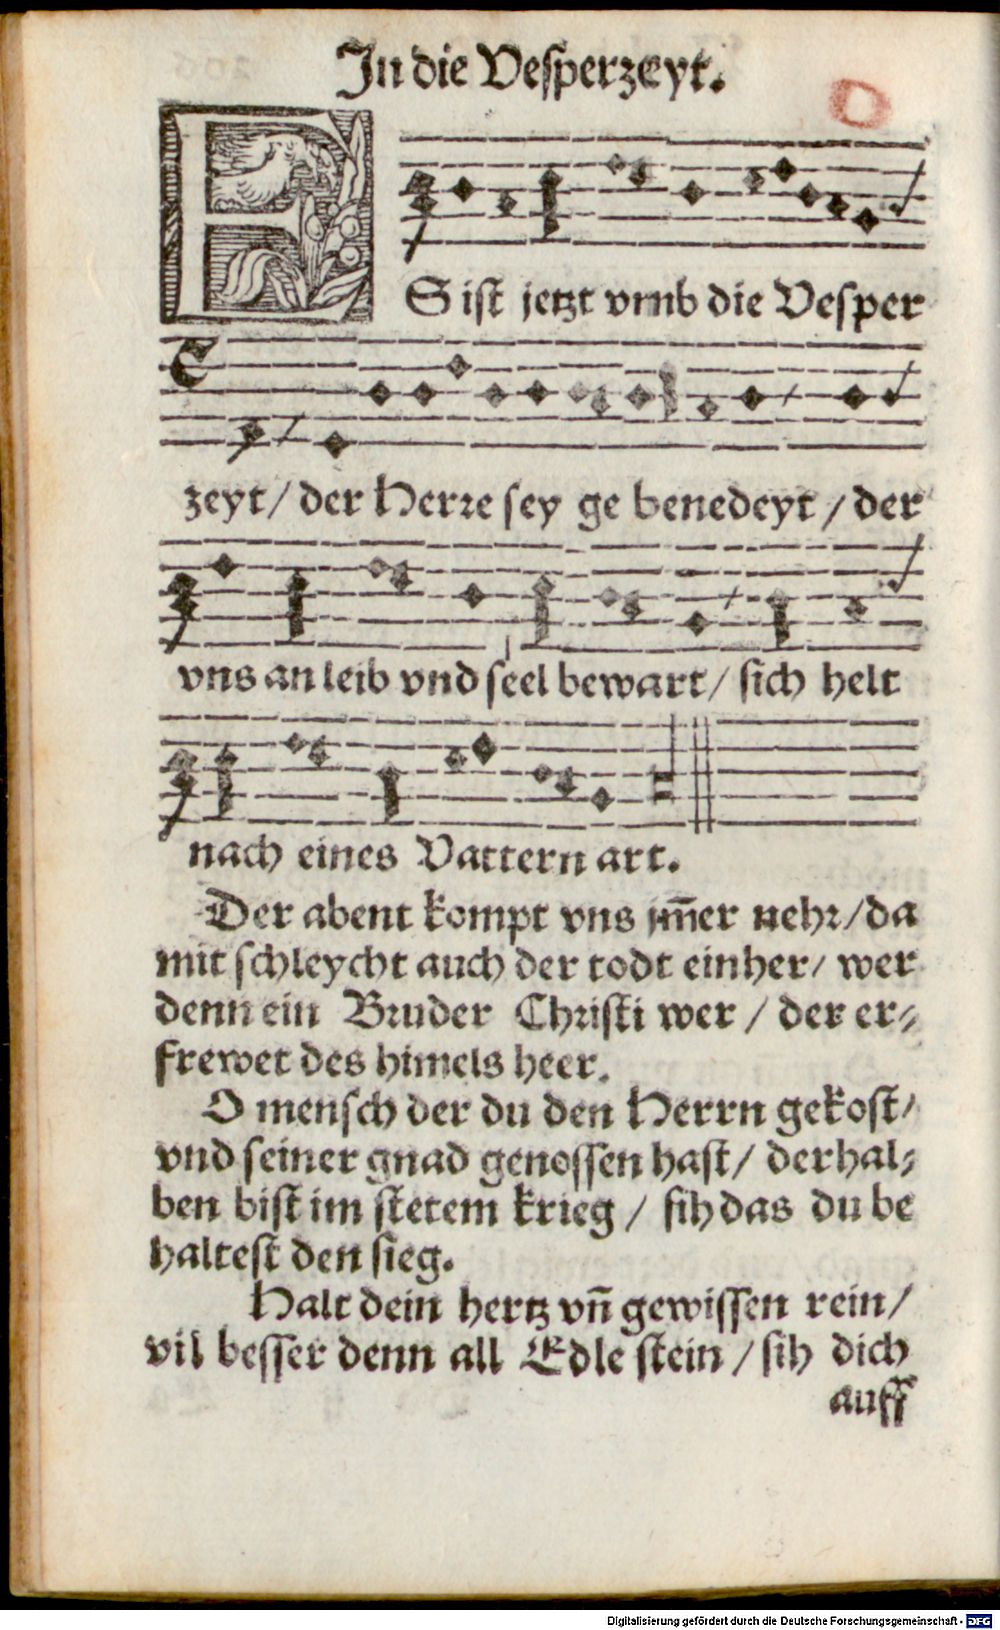 In die Vesperzeyt.
ES ist jetzt vmb die Vesper
zeyt/ der Herre sey ge benedeyt/ der
vns an leib vnd seel bewart/ sich helt
nach eines Vattern art.
Der abent kompt vns jm̄er nehr/ da
mit schleycht auch der todt einher/ wer
denn ein Bruder Christi wer/ der er⸗
frewet des himels heer.
O mensch der du den Herrn gekost/
vnd seiner gnad genossen hast/ derhal⸗
ben bist im stetem krieg/ sih das du be
haltest den sieg.
Halt dein hertz vn̄ gewissen rein/
vil besser denn all Edle stein/ sih dich
auff
Digitalisierung gefördert durch die Deutsche Forschungsgemeinschaft - DFG